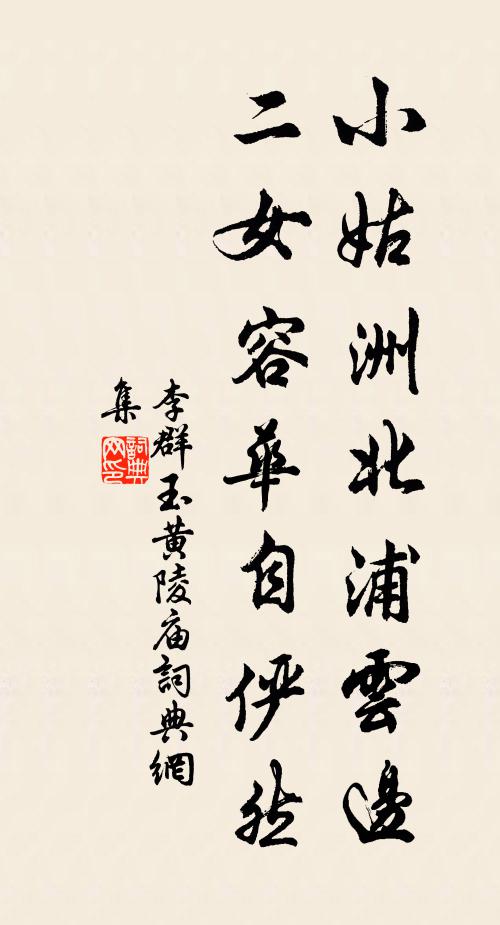 小姑洲北浦雲邊
二女容華自儼然
李群玉黄陵庙詞典網
集
詞典網印